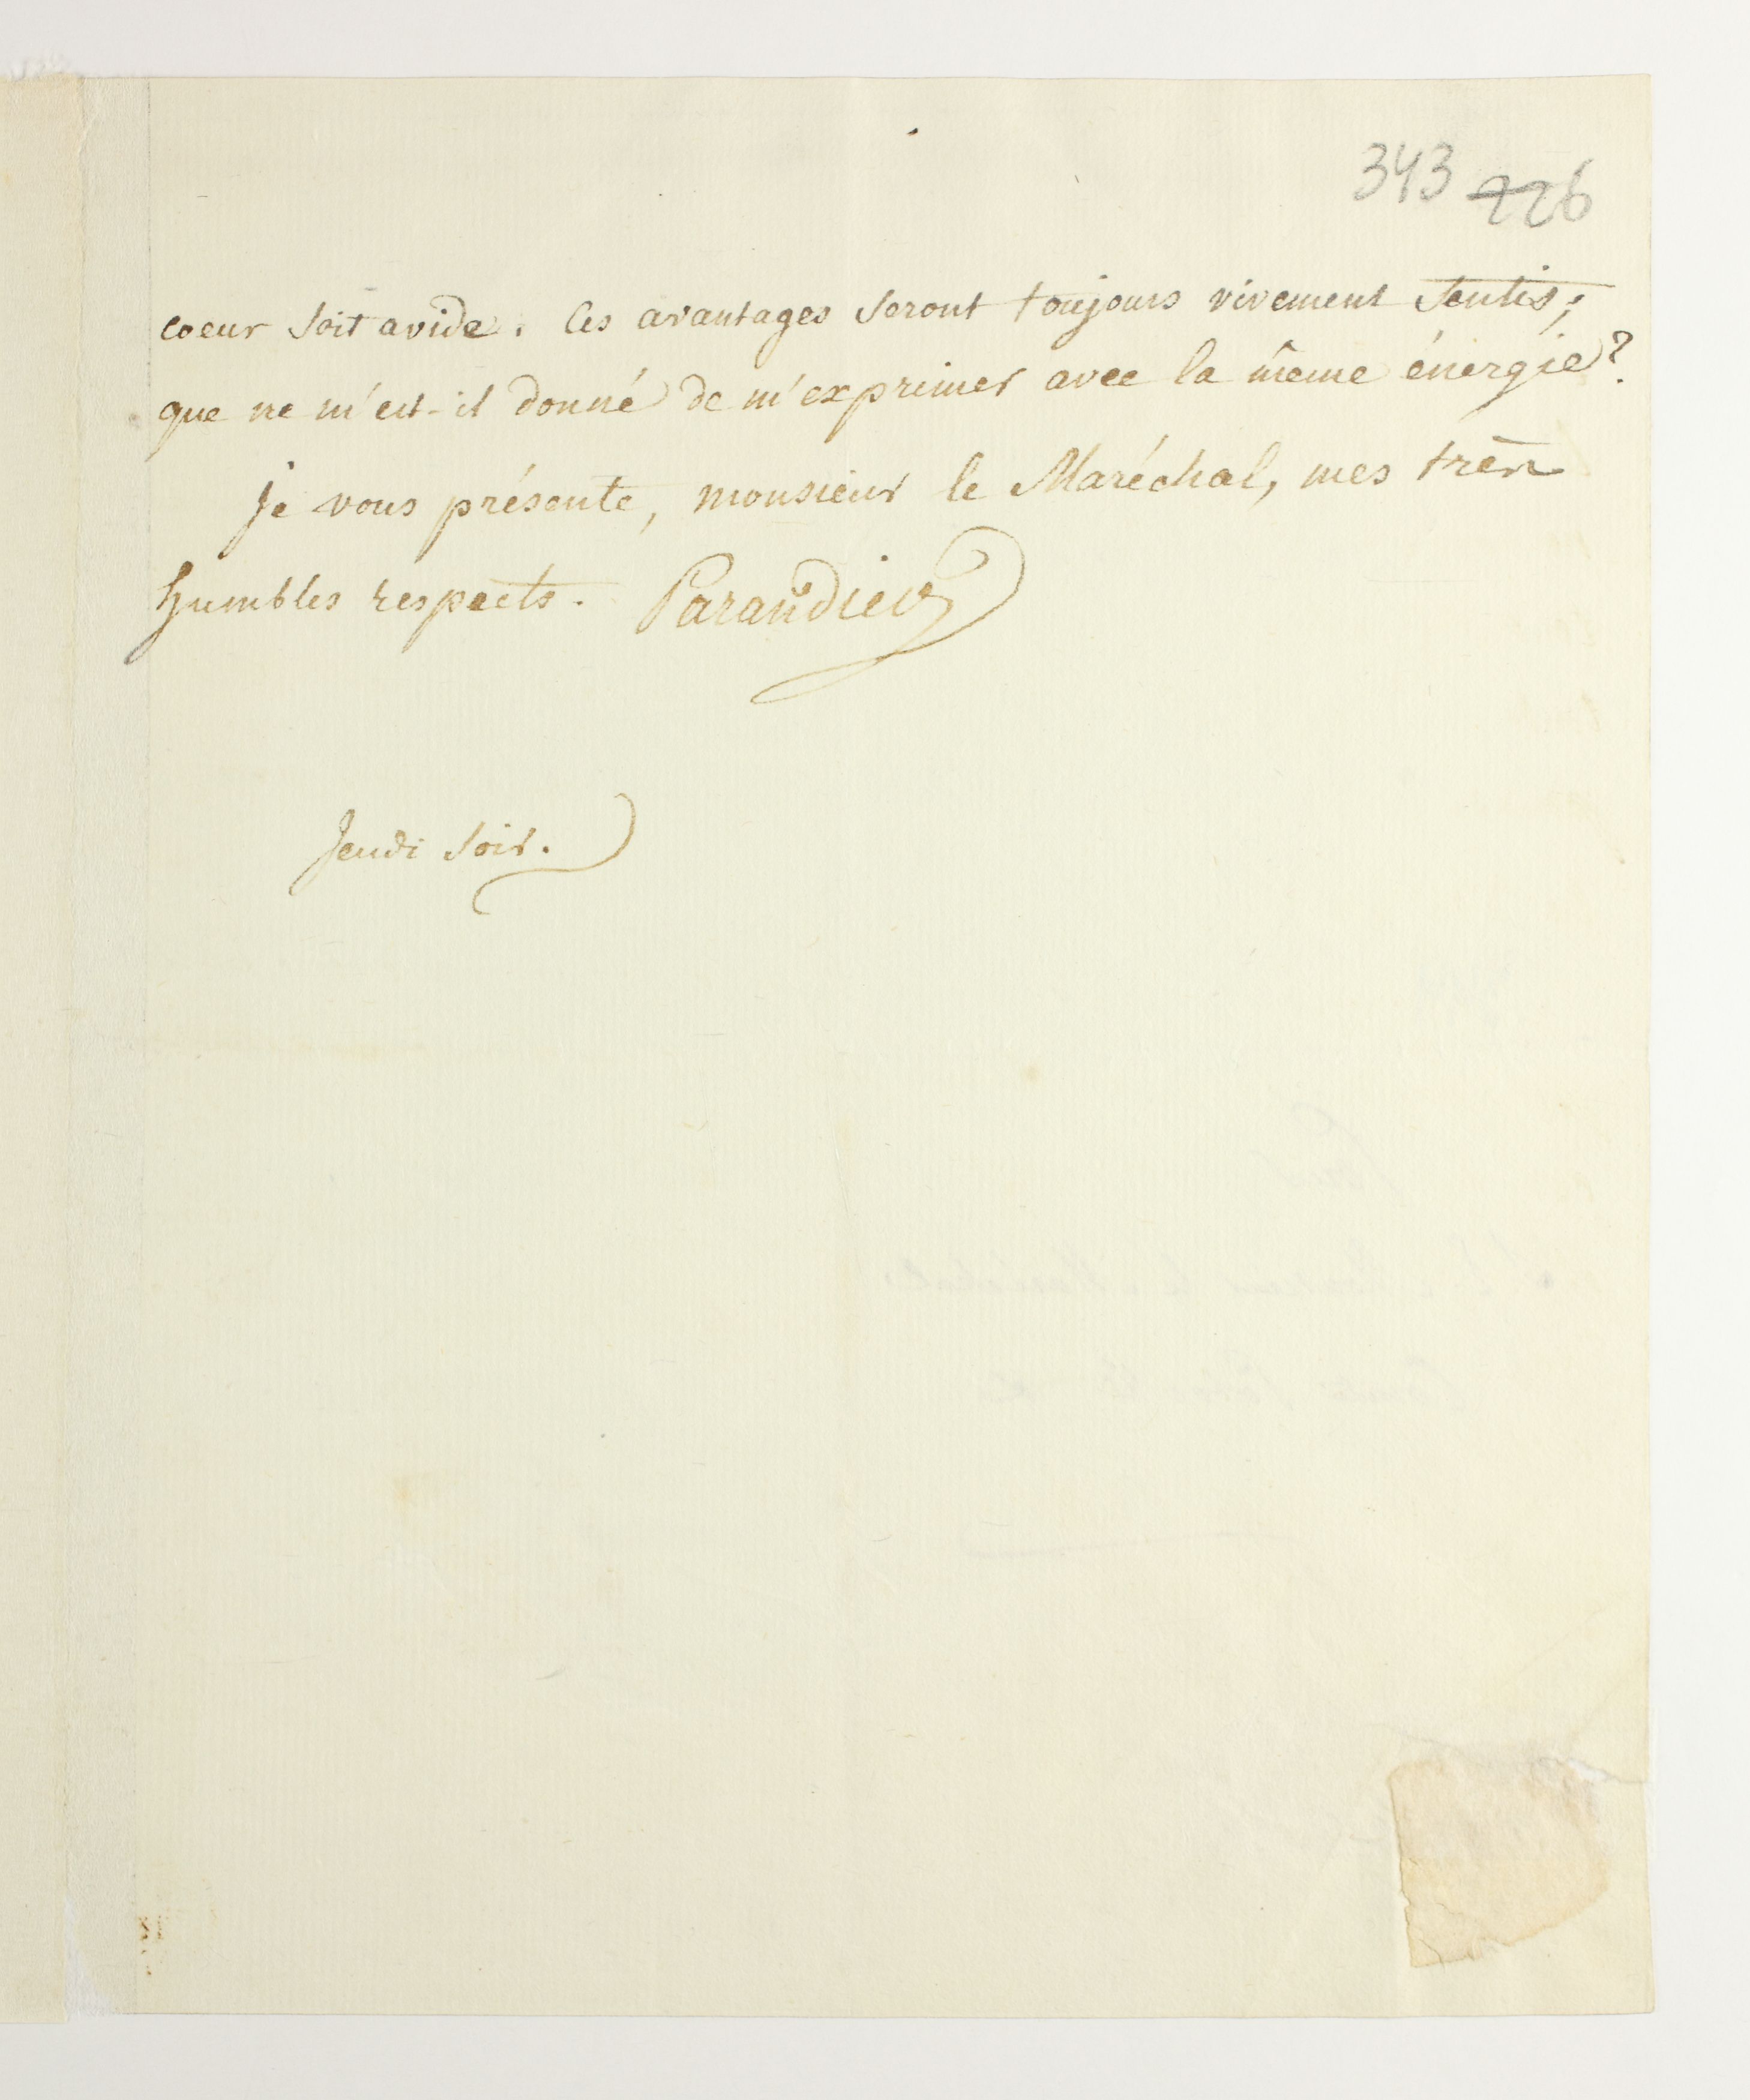 343 226
coeur soit avide. Ces avantages seront toujours vivement sentis;
que ne m'est-il donné de m'exprimer avec la même énergie?
je vous présente, monsieur le Maréchal, mes très
humbles respects. Parandier
Jeudi soir.